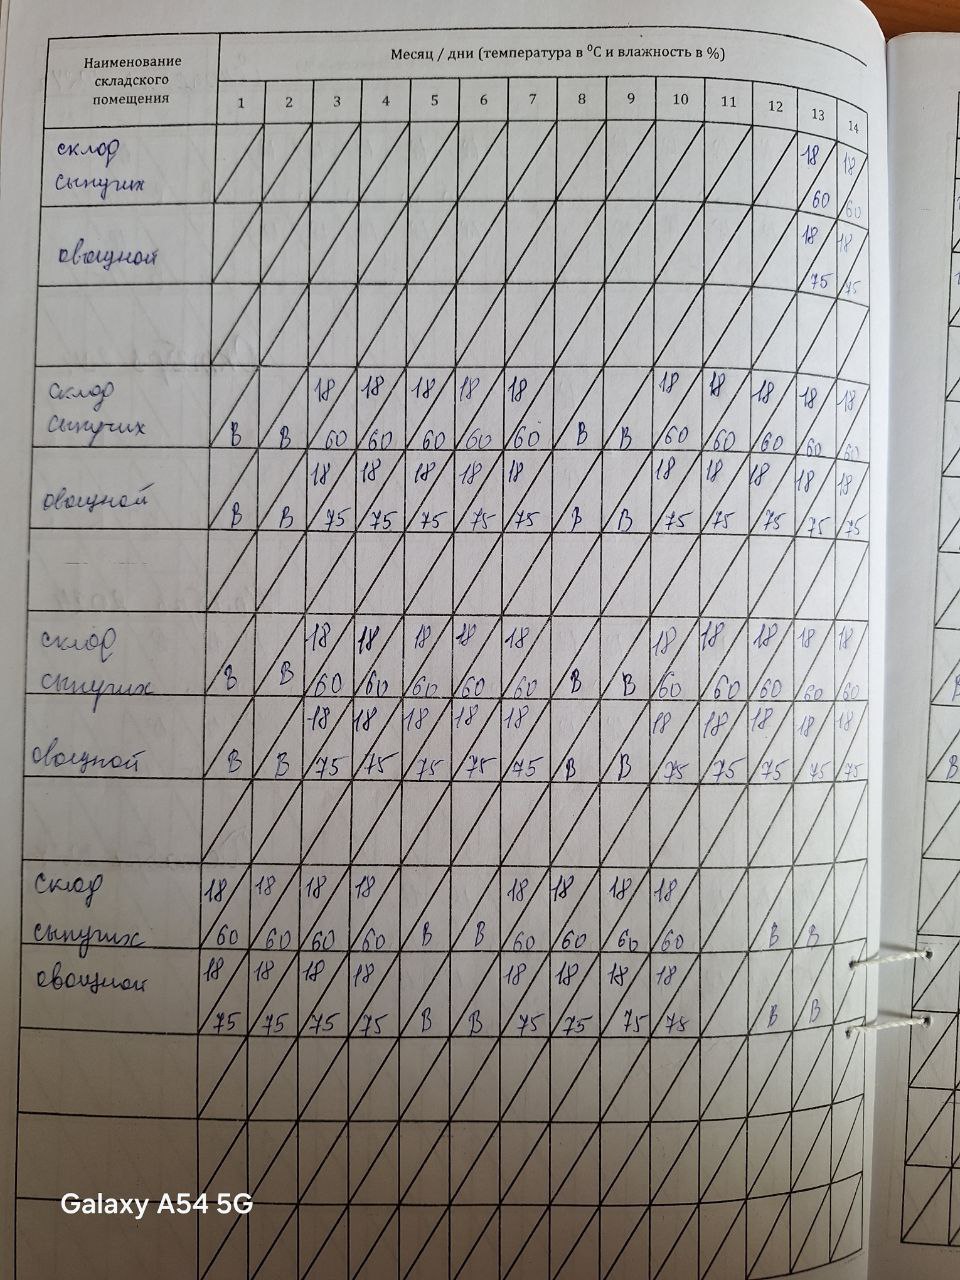 Наименование
складского
помещения
Месяц / дни (температура в ⁰С и влажность в %)
1 2 3 4 5 6 7 8 9 10 11 12 13 14
склад 18 18
сыпучих 60 60
овощной 18 18
75 75
склад 18 18 18 18 18 18 18 18 18 18
сыпучих В В 60 60 60 60 60 В В 60 60 60 60 60
18 18 18 18 18 18 18 18 18 18
овощной В В 75 75 75 75 75 В В 75 75 75 75 75
склад 18 18 18 18 18 18 18 18 18 18
сыпучих В В 60 60 60 60 60 В В 60 60 60 60 60
18 18 18 18 18 18 18 18 18 18
овощной В В 75 75 75 75 75 В В 75 75 75 75 75
склад 18 18 18 18 18 18 18 18
сыпучих 60 60 60 60 В В 60 60 60 60 В В
овощной 18 18 18 18 18 18 18 18
75 75 75 75 В В 75 75 75 75 В В
Galaxy A54 5G